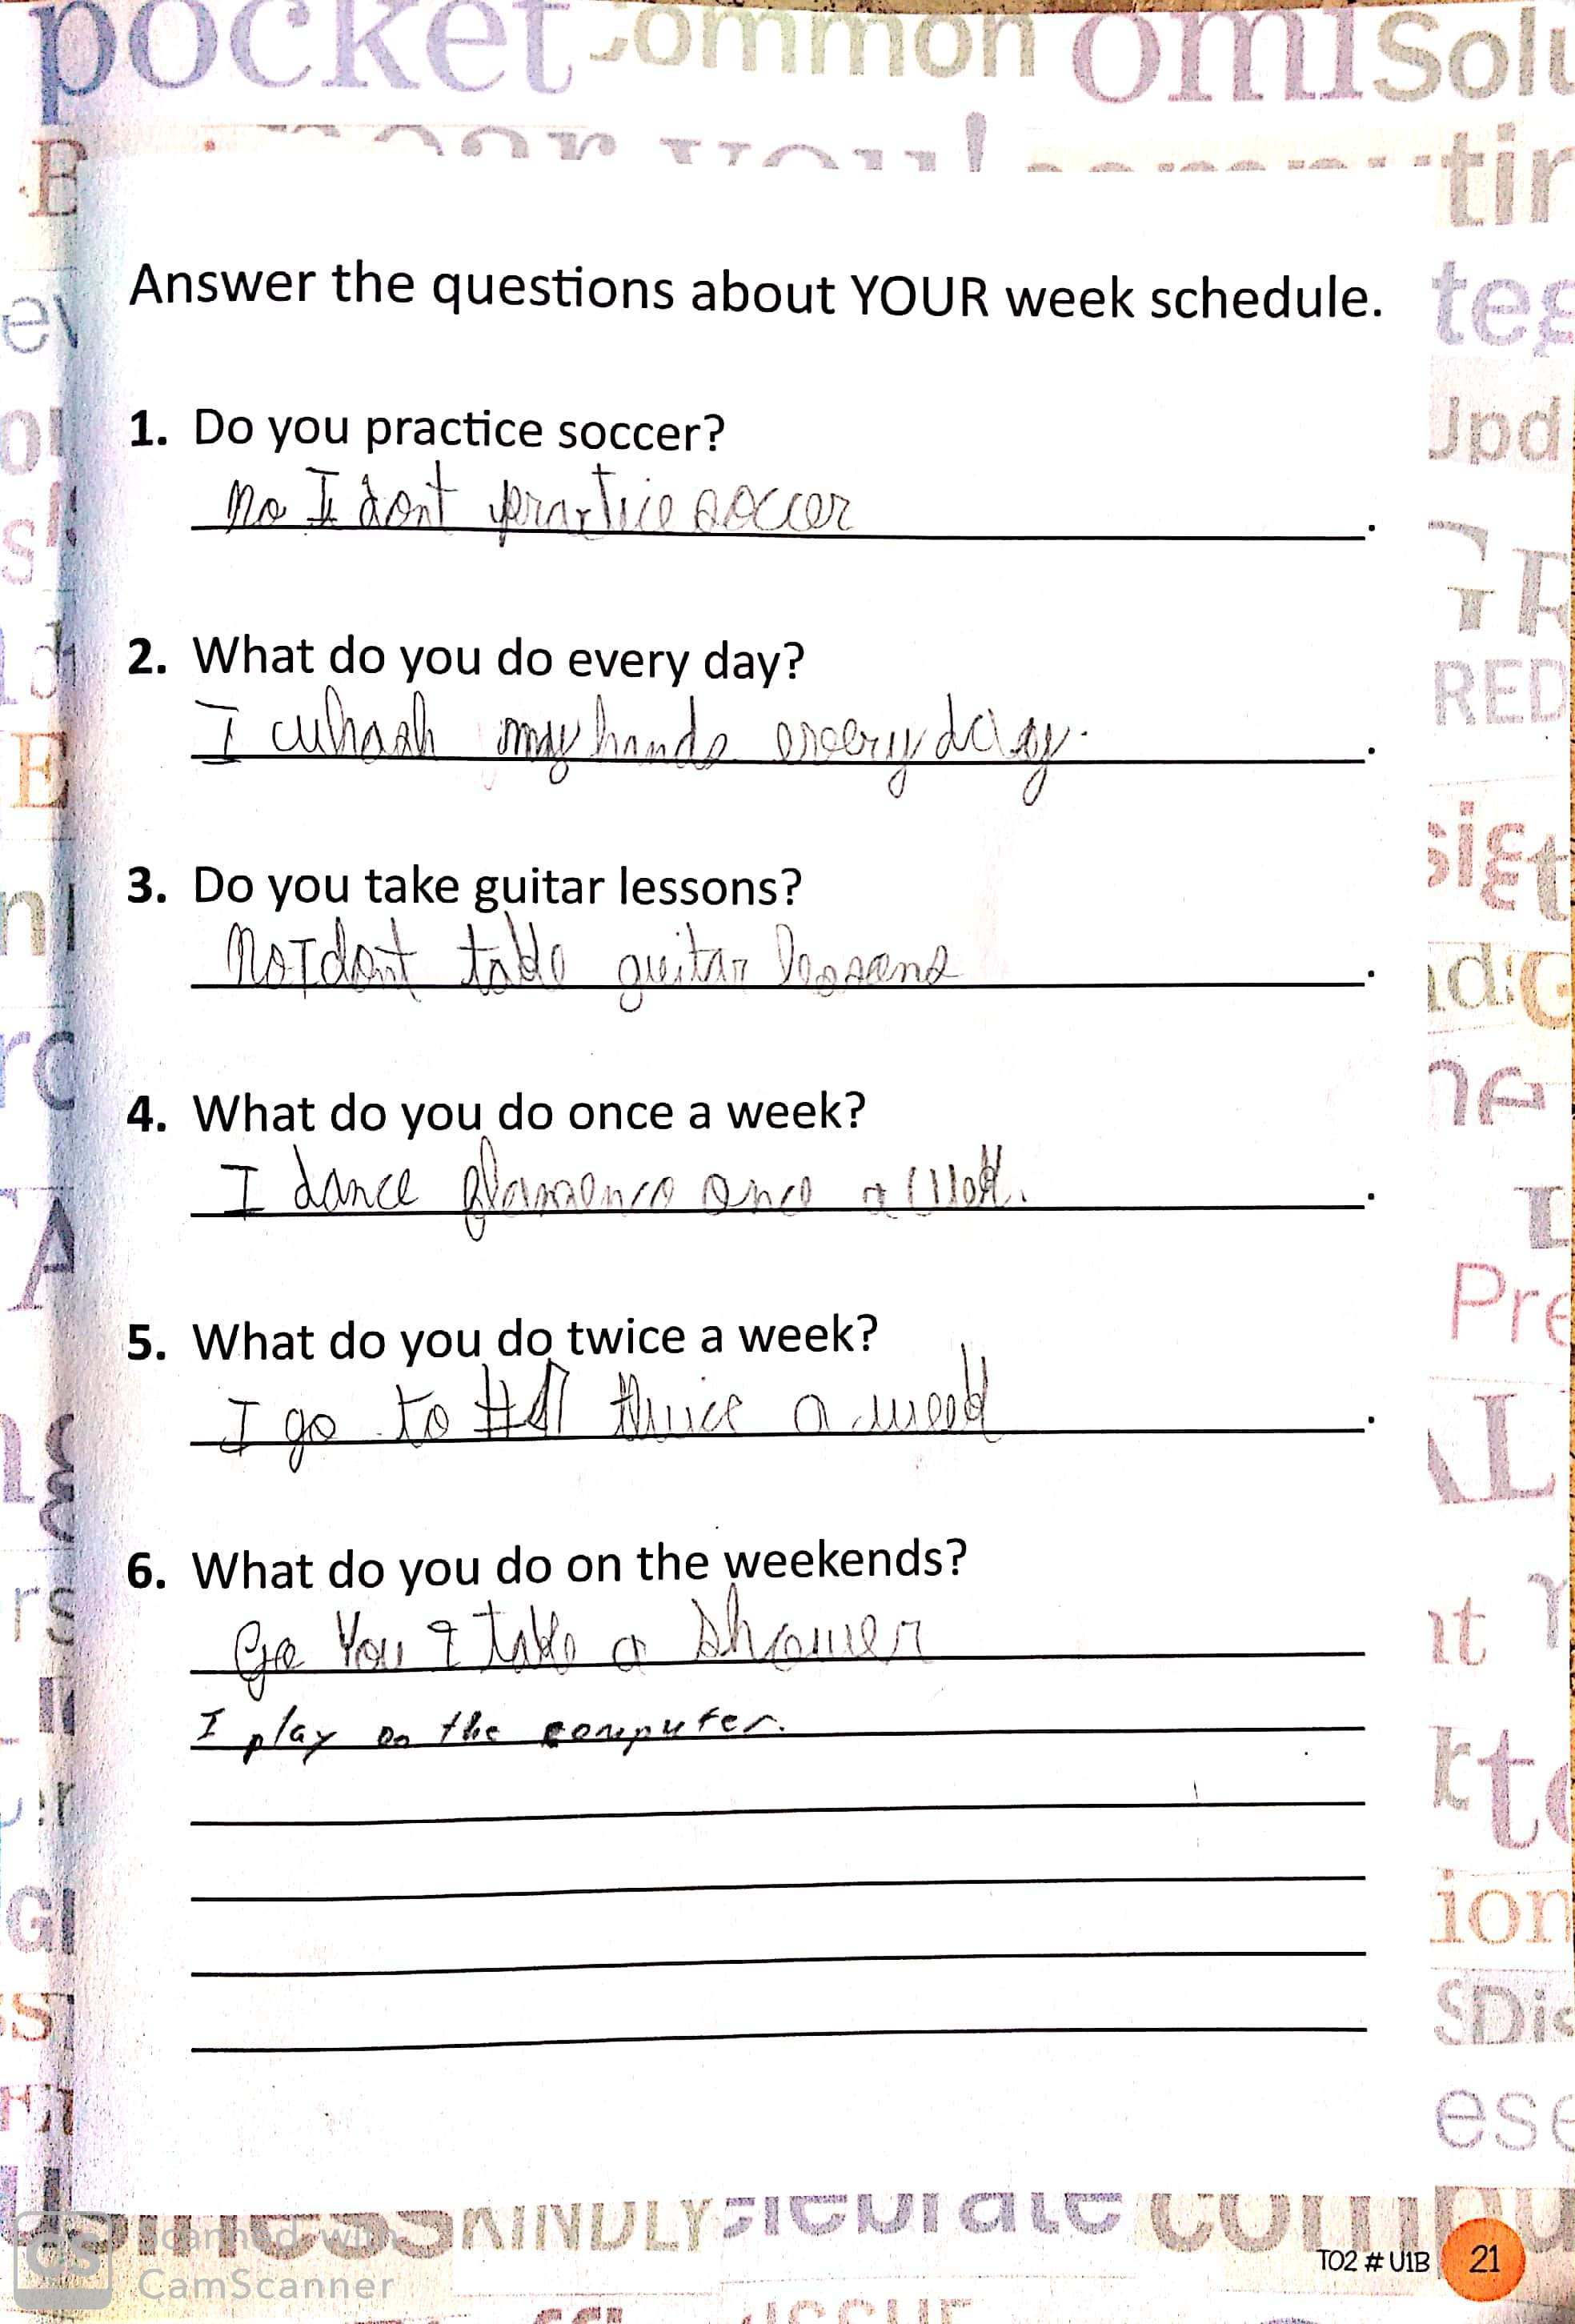 pocket common omi Solu
tir
Answer the questions about YOUR week schedule.
1. Do you practice soccer?
No I dont practice soccer .
2. What do you do every day?
I whash my hands every day. .
3. Do you take guitar lessons?
No I dont take guitar lessons .
4. What do you do once a week?
I dance flamenco once a week. .
5. What do you do twice a week?
I go to twice a week .
6. What do you do on the weekends?
You I take a shower
I play on the computer.
KINDLY celebrate compu
TO2 # U1B 21
CS Scanned with
CamScanner